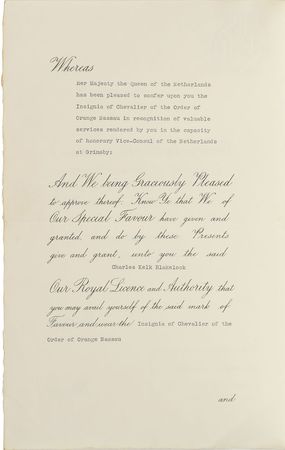 Whereas
Her Majesty the Queen of the Netherlands
has been pleased to confer upon you the
Insignia of Chevalier of the Order of
Orange Nassau in recognition of valuable
services rendered by you in the capacity
of honorary Vice-Consul of the Netherlands
at Grimsby;
And We being Graciously Pleased
to approve thereof: Know Ye that We of
Our Special Favour have given and
granted, and do by these Presents
give and grant, unto you the said
Charles Kelk
Our Royal Licence and Authority that
you may avail yourself of the said mark of
Favour and wear the Insignia of Chevalier of the
Order of Orange Nassau
and